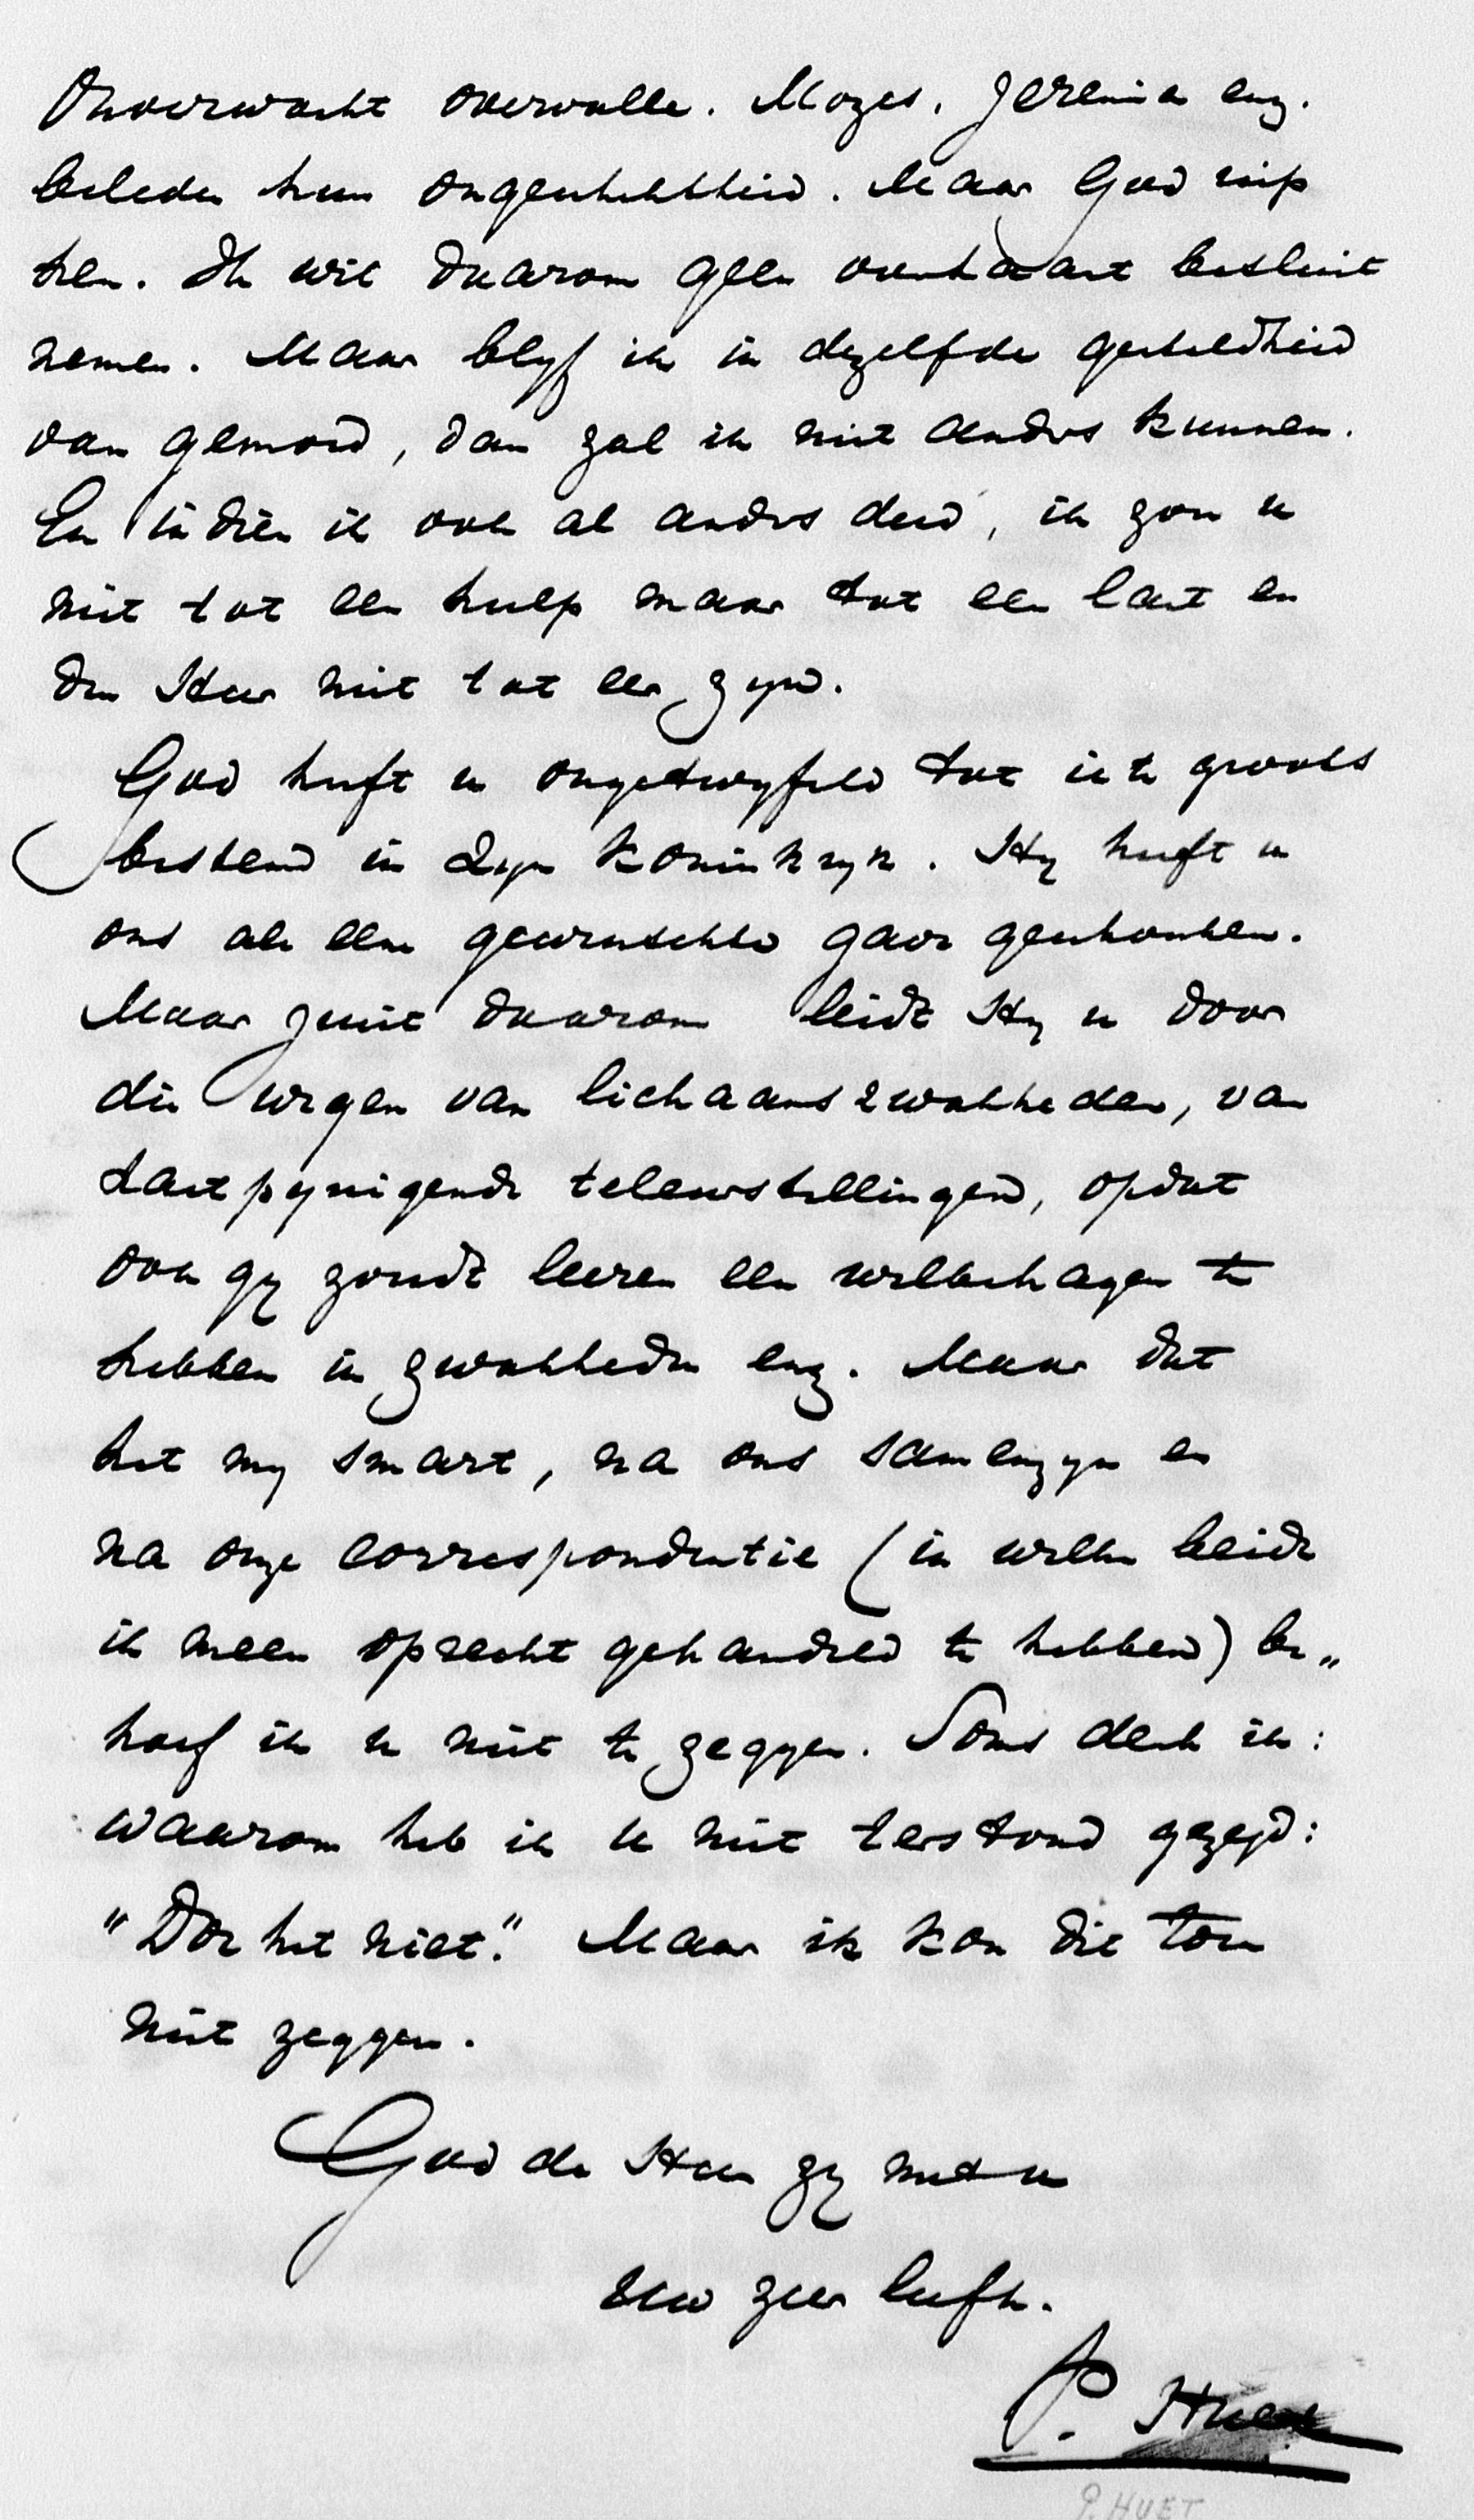 Onverwacht overvalle. Mozes, Jeremia enz.
beleden hun ongeschiktheid. Maar God riep
hen. Ik wil daarom geen overhaast besluit
nemen. Maar blyf ik in dezelfde gesteldheid
van gemoed, dan zal ik niet anders kunnen.
En indien ik ook al anders deed, ik zou u
niet tot een hulp maar tot een last en
den Heer niet tot eer zyn.
God heeft u ongetwyfeld tot iets groots
bestemd in Zyn Koninkryk. Hy heeft u
ons als eene gewenschte gave geschonken.
Maar juist daarom leidt Hy u door
die wegen van lichaamszwakheden, van
hartpynigende teleurstellingen, opdat
ook gy zoudt leeren een welbehagen te
hebben in zwakheden enz. Maar dat
het my smart, na ons samenzyn en
na onze correspondentie (in welke beide
ik meen oprecht gehandeld te hebben) be„
hoef ik u niet te zeggen. Soms denk ik:
waarom heb ik u niet terstond gezegd:
"Doe het niet." Maar ik kon die toen
niet zeggen.
God de Heer zy met u
Uw zeer liefh.
P. Huet
P. HUET